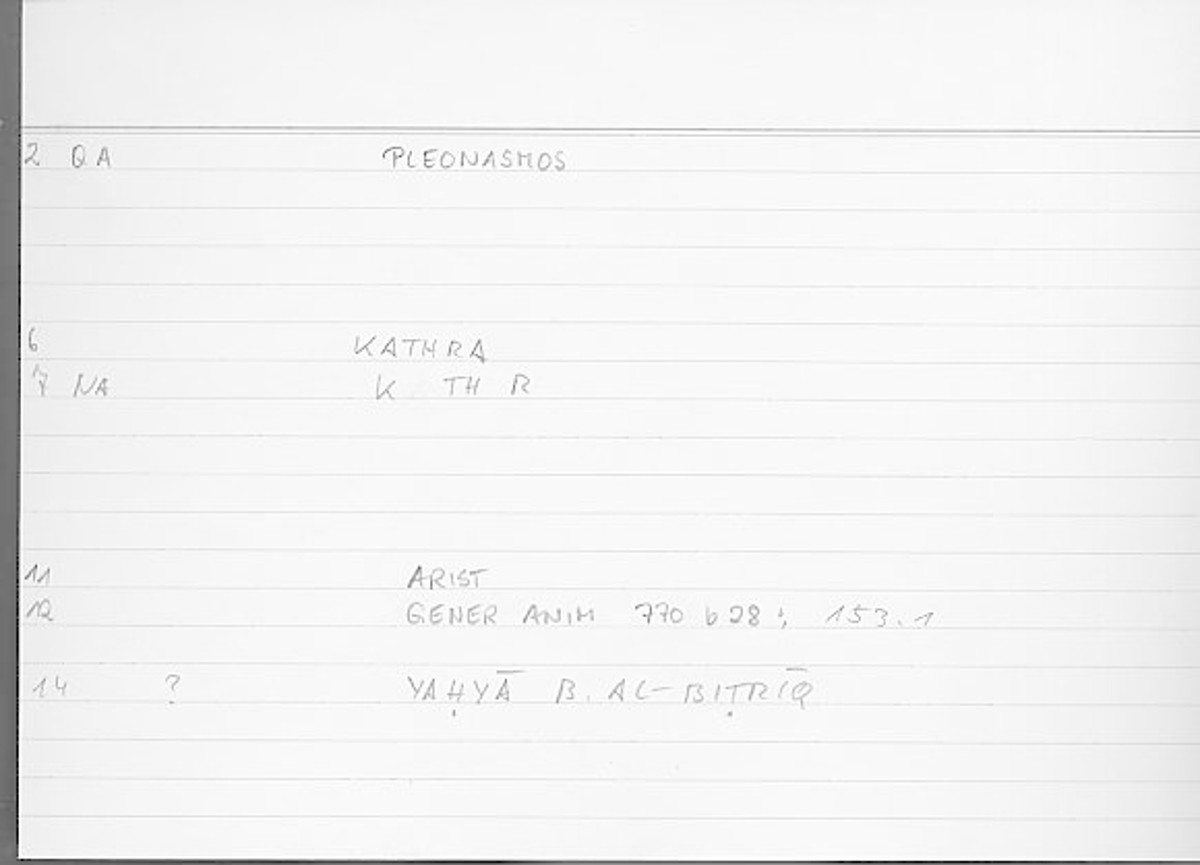 2 QA PLEONASMOS
6 KATHRA
7 NA K TH R
11 ARIST
12 GENER ANIM 770 b 28 ; 153.1
14 ? YAḤYĀ B. AL-BIṬRĪQ